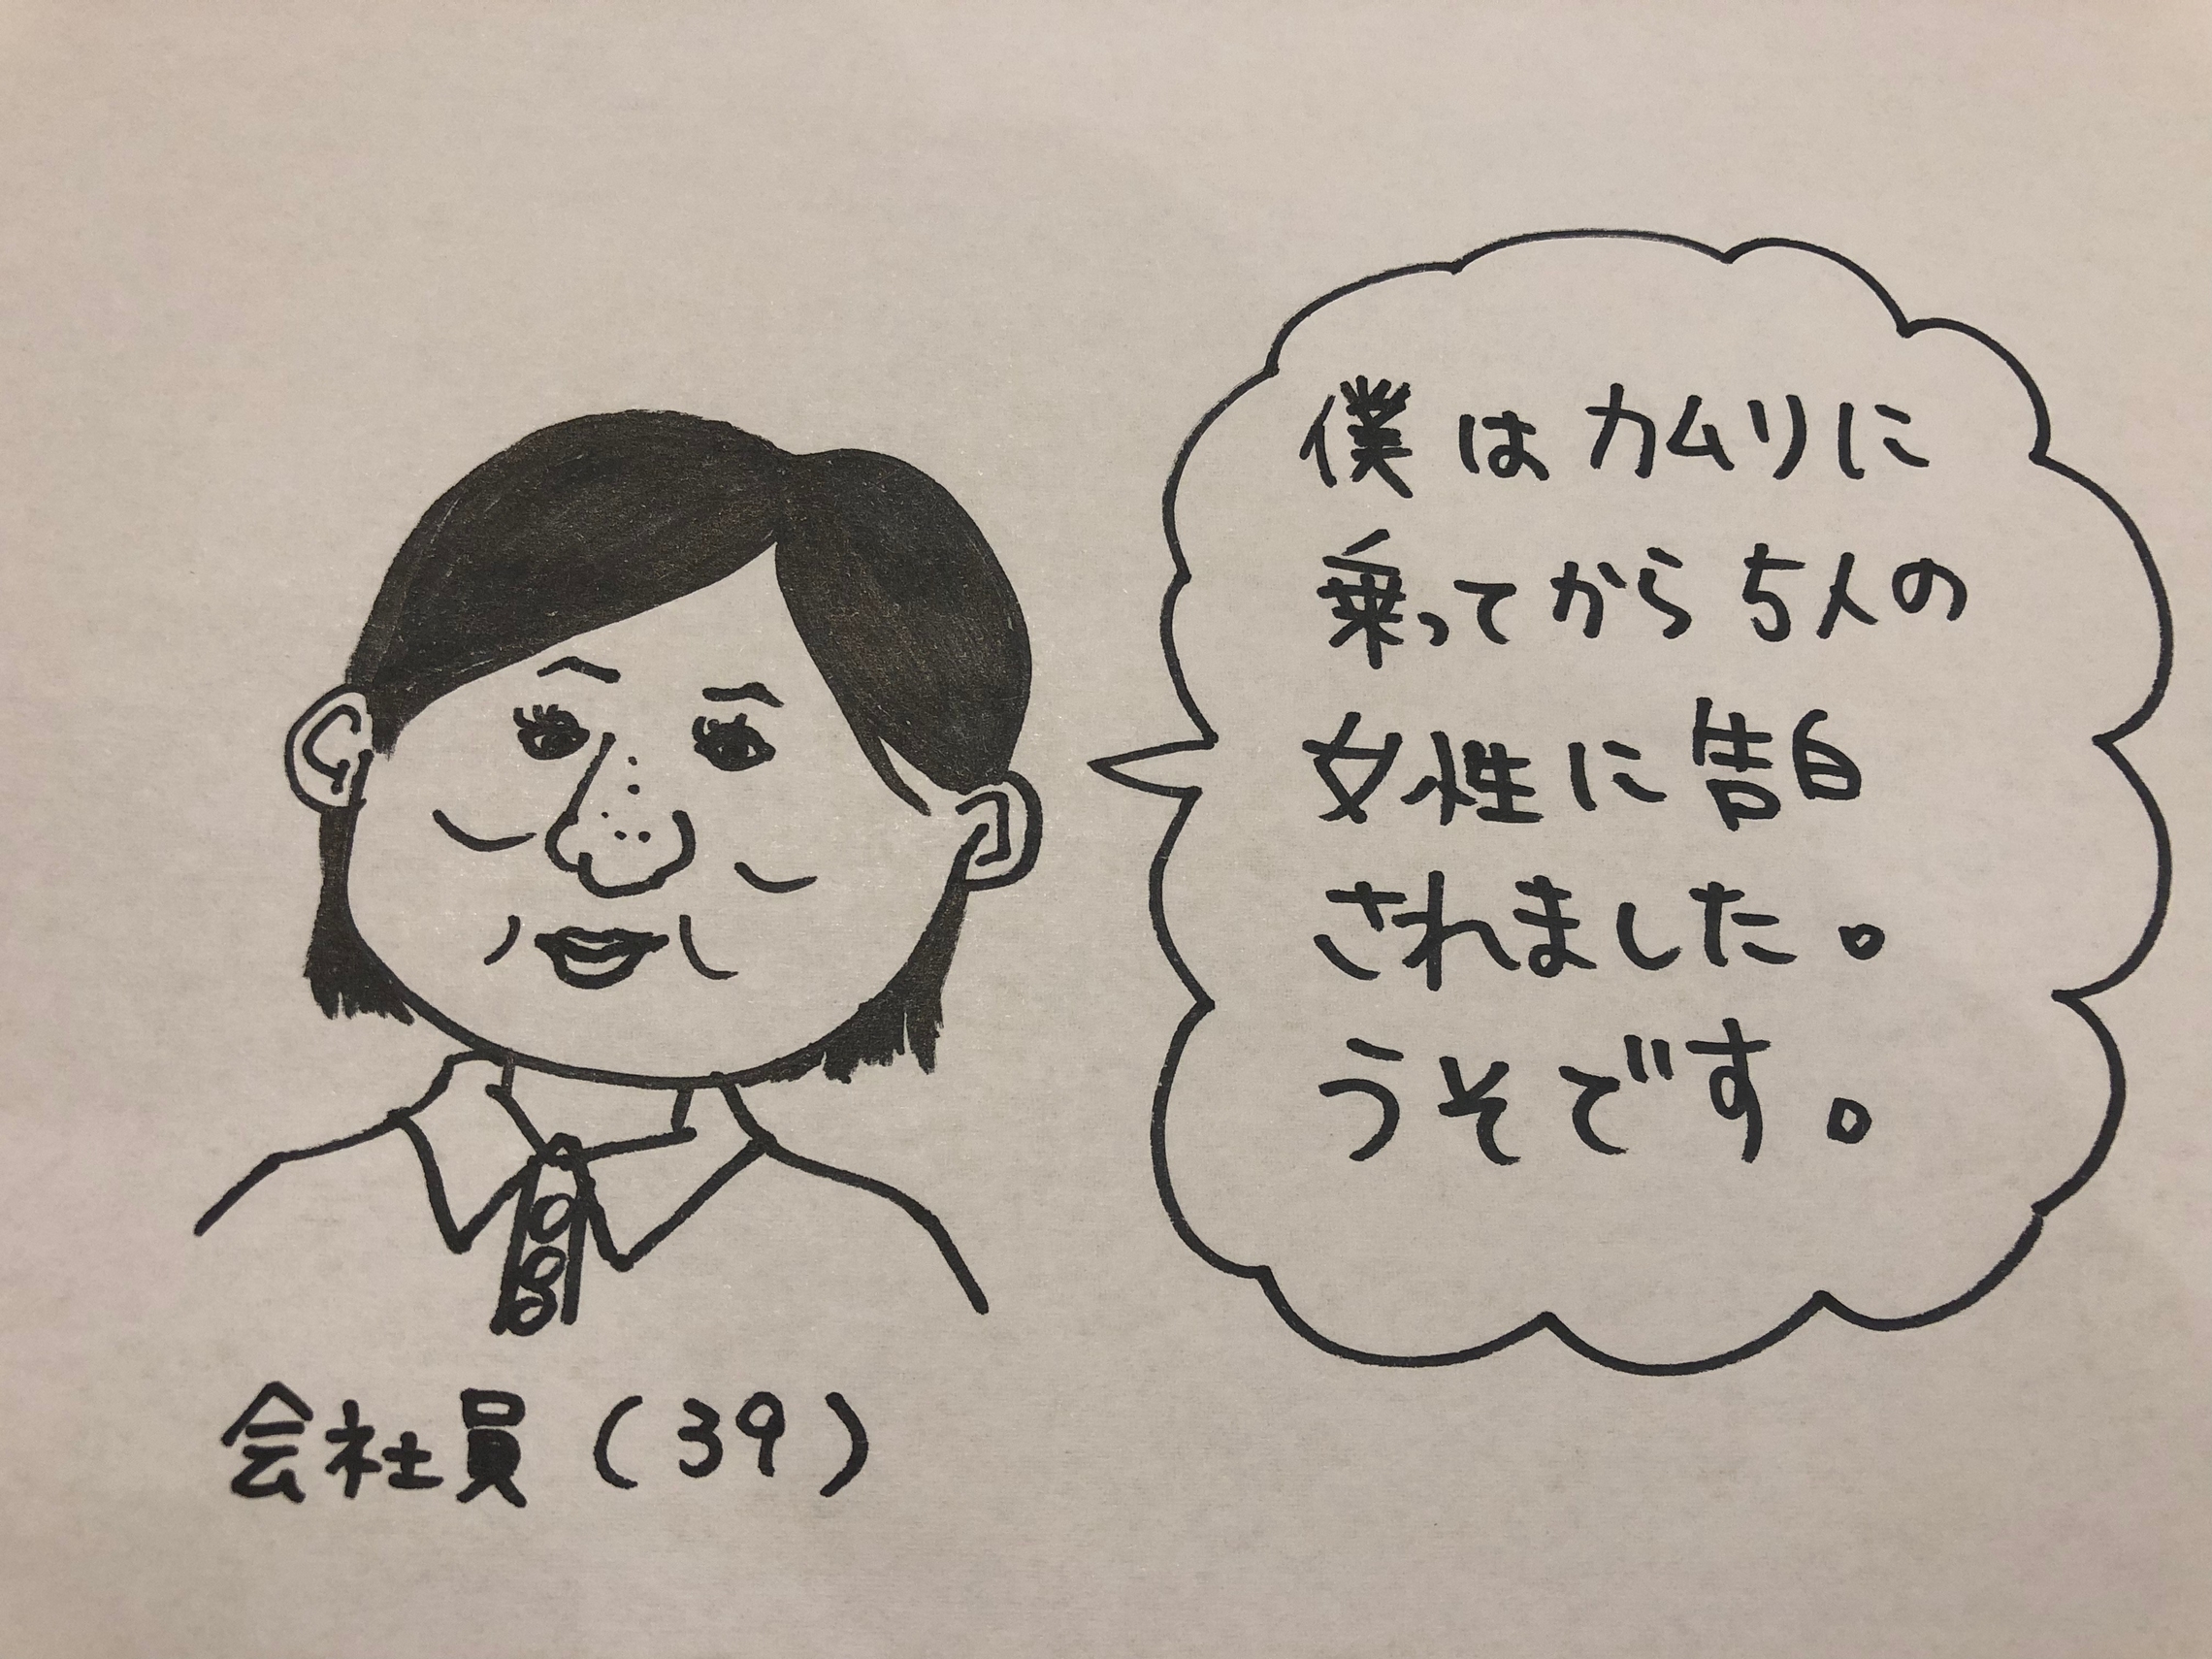 僕はカムリに
乗ってから5人の
女性に告白
されました。
うそです。
会社員(39)